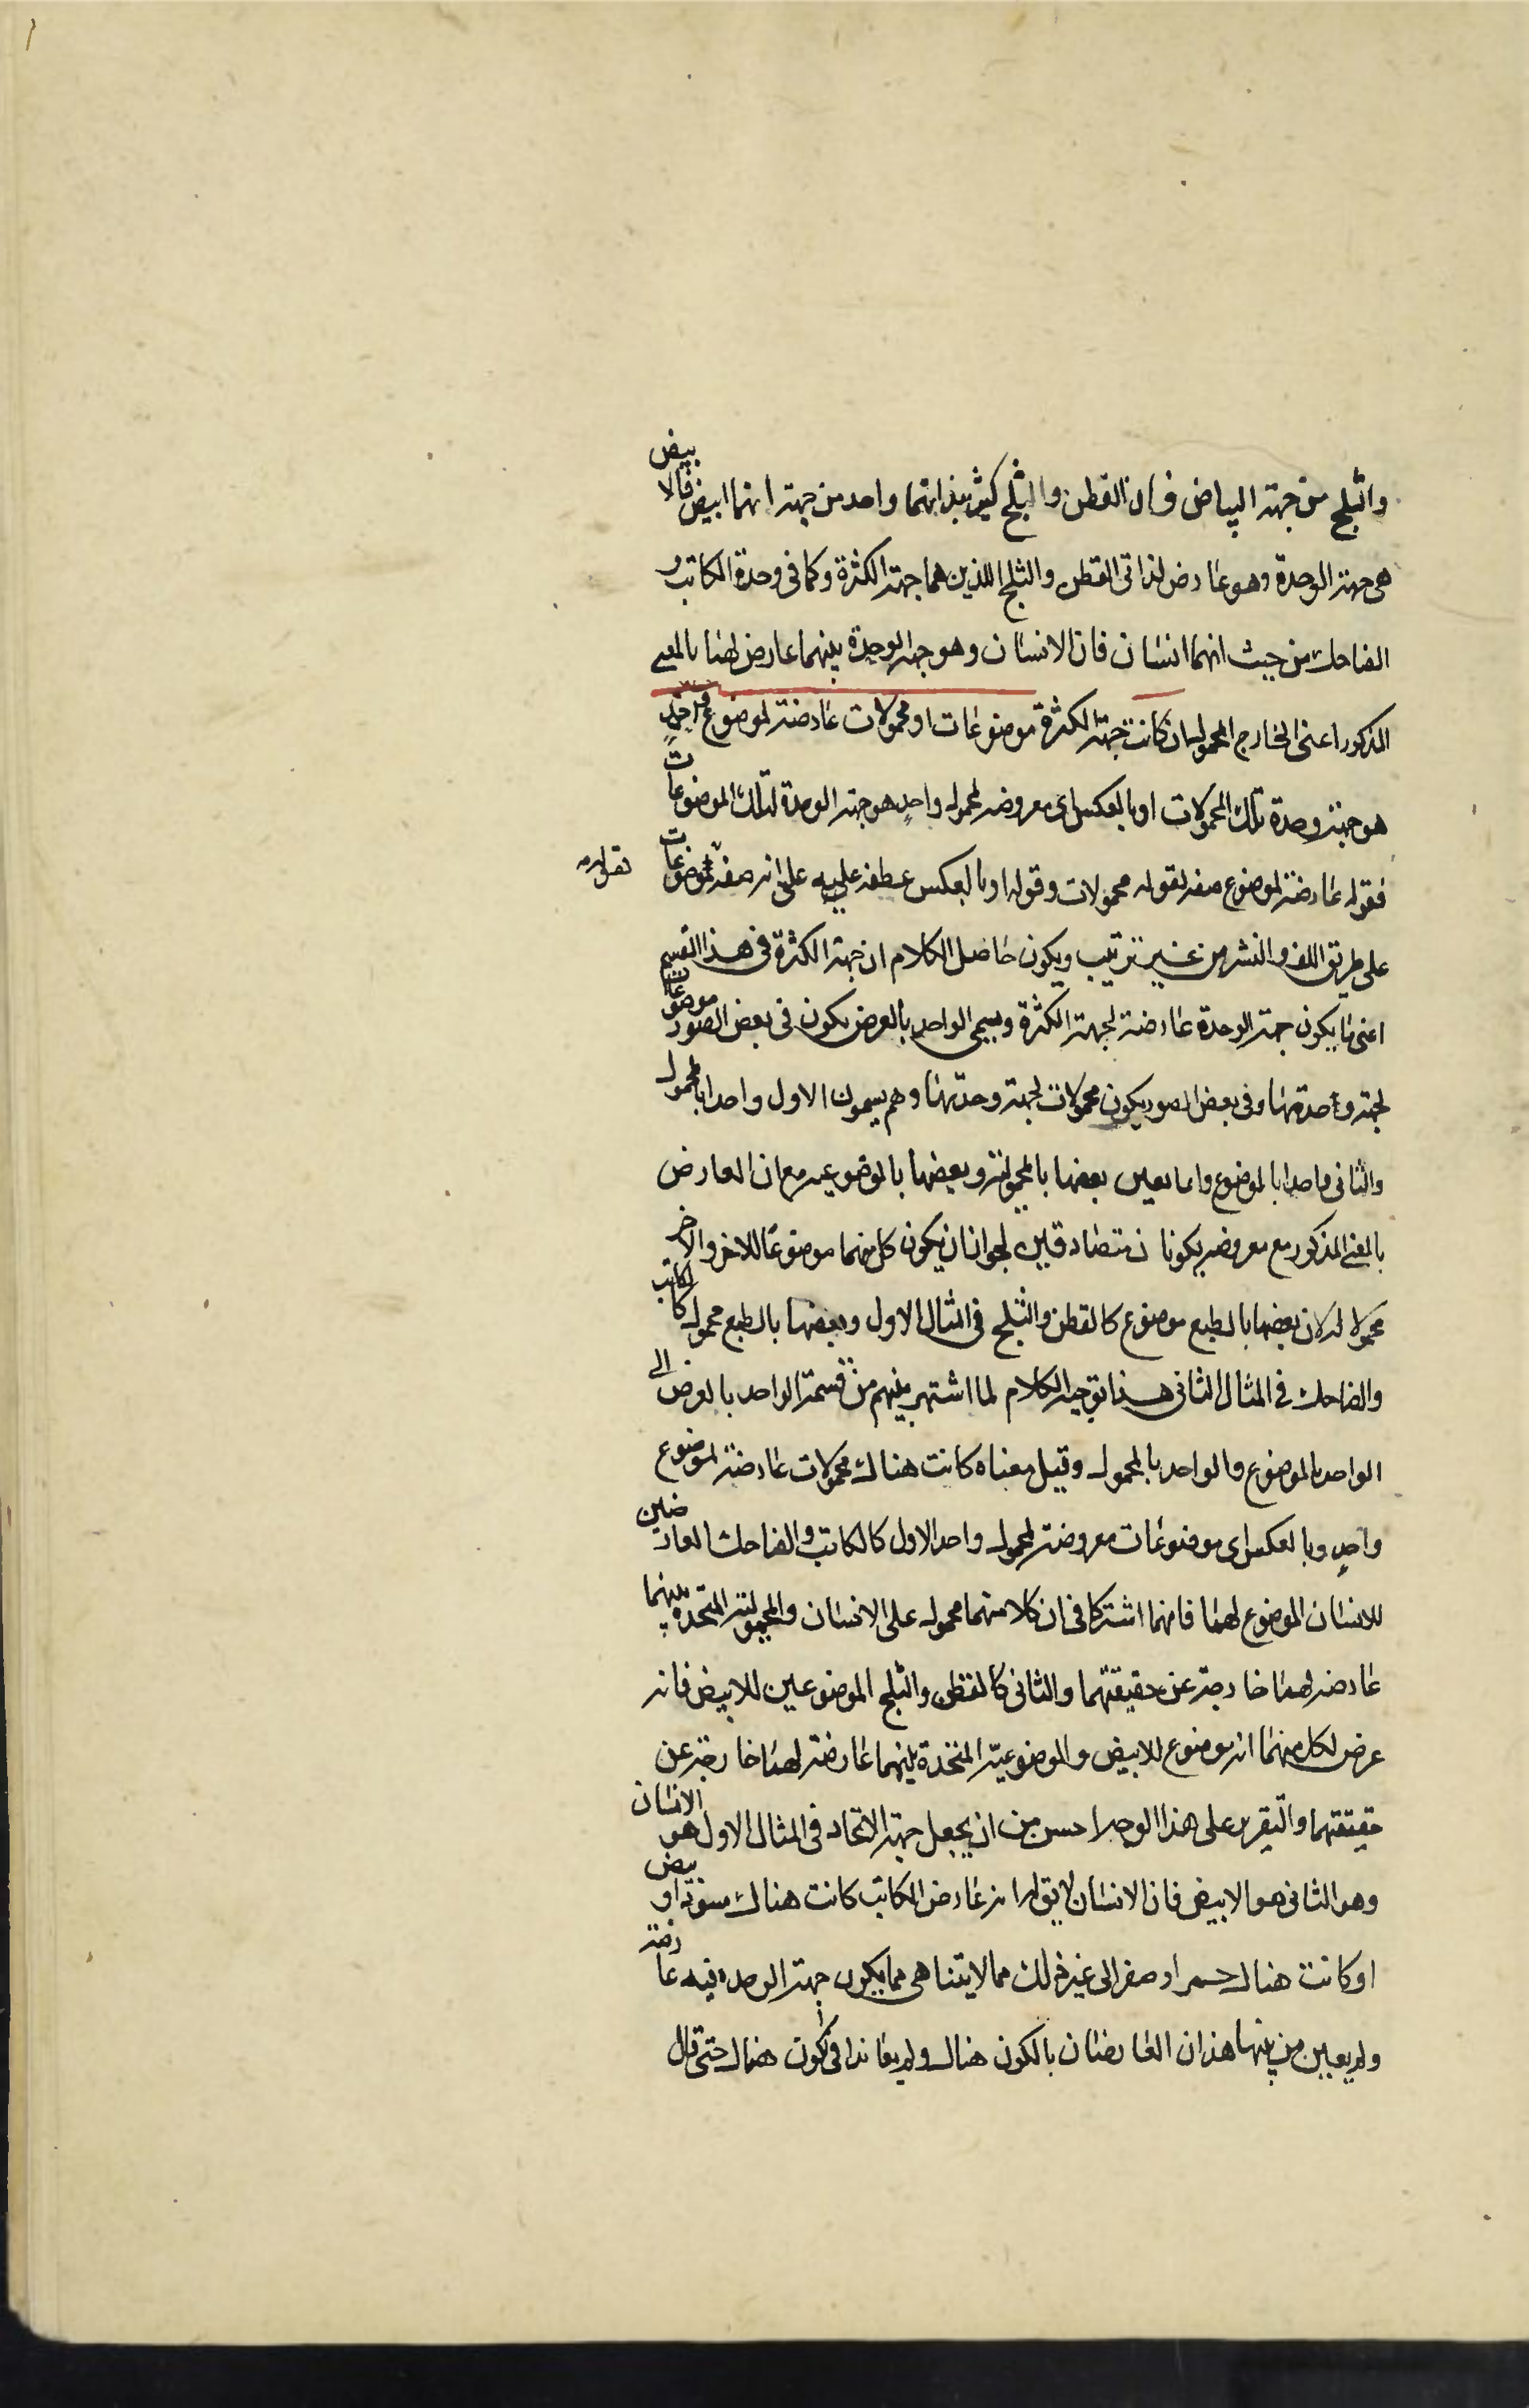 والثلج من جهة البياض فان القطن والثلج كثير بذاتهما واحد من جهة انهما ابيض فالابيض
هى جهة الوحدة وهو عارض لذاتى القطن والثلج اللذين هما جهة الكثرة وكما فى وحدة الكاتب و
الضاحك من حيث انهما انسان فان الانسان وهو جهة الوحدة بينهما عارض لهما بالمعنى
المذكور اعنى الخارج المحمول ان كانت جهة الكثرة موضوعات او محمولات عارضة لموضوع واحد
هو جهة وحدة تلك المحمولات او بالعكس اى معروضه لمحمول واحدٍ هو جهة الوحدة لتلك الموضوعات
فقوله عارضة لموضوع صفه لقوله محمولات وقوله او بالعكس عطفه عليه على انه صفه لموضوعات
على طريق اللف والنشر من غير ترتيب ويكون حاصل الكلام ان جهة الكثرة فى هذا القسم
اعنى ما يكون جهة الوحدة عارضة لجهة الكثرة ويسمى الواحد بالعرض يكون فى بعض الصور موضوعات
لجهة وحدتها وفى بعض الصور يكون محمولات لجهة وحدتها وهم يسمون الاول واحدا بالمحمول
والثانى واحدا بالموضوع وانما يعين بعضها بالمحمولية وبعضها بالموضوعيه مع ان العارض
بالمعنى المذكور مع معروضه يكونان متصادقين لجواز ان يكون كل منهما موضوعًا للاخر والاخر
محمولا له لان بعضها بالطبع موضوع كالقطن والثلج فى المثال الاول وبعضها بالطبع محمول كالكاتب
والضاحك فى المثال الثانى هذا توجيه الكلام لما اشتهر بينهم من قسمة الواحد بالعرض الى
الواحد بالموضوع والواحد بالمحمول وقيل معناه كانت هناك محمولات عارضة لموضوع
واحدٍ وبالعكس اى موضوعات معروضة لمحمول واحد الاول كالكاتب والضاحك العارضين
للانسان الموضوع لهما فانهما اشتركا فى ان كلا منهما محمول على الانسان والمحمولية المتحدة بينهما
عارضه لهما خارجة عن حقيقتهما والثانى كالقطن والثلج الموضوعين للابيض فانه
عرض لكل منهما انه موضوع للابيض والموضوعيّة المتحدة بينهما عارضة لهما خارجة عن
حقيقتهما والتقرير على هذا الوجه احسن من ان يجعل جهة الاتحاد فى المثال الاول هو الانسان
وهو الثانى هو الابيض فان الانسان لا يق له انه عارض الكاتب كانت هناك او
او كانت هناك حمر او صفر الى غير ذلك مما لا يتناهى مما يكون جهة الوحده فيه عارضة
ولم يعين من بينها هذان العارضان بالكون هناك ولم يعاندا فى كون هناك حتى قال